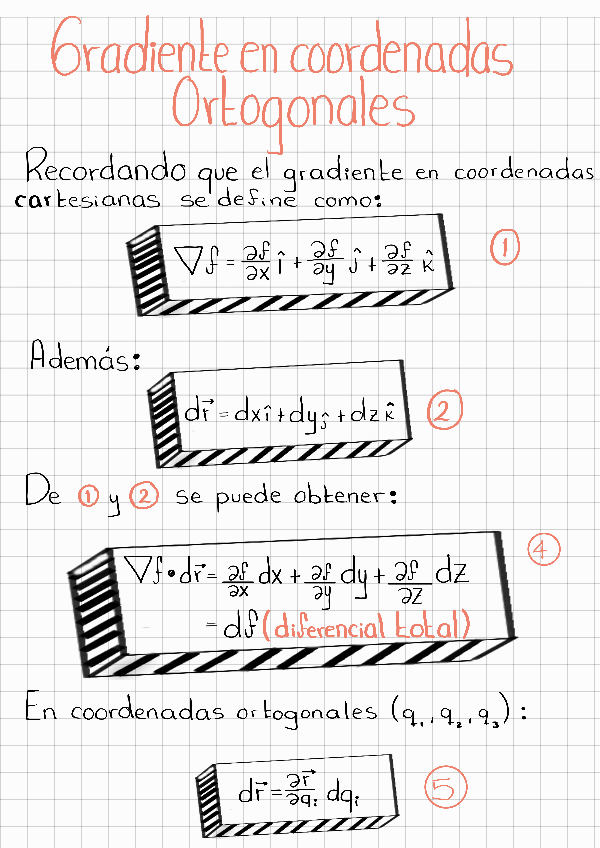 Gradiente en coordenadas
Ortogonales
Recordando que el gradiente en coordenadas
cartesianas se define como:
∇f = ∂f/∂x î + ∂f/∂y ĵ + ∂f/∂z k̂ ①
Además:
dr⃗ = dxî + dyĵ + dzk̂ ②
De ① y ② se puede obtener:
∇f • dr⃗ = ∂f/∂x dx + ∂f/∂y dy + ∂f/∂z dz ④
= df (diferencial total)
En coordenadas ortogonales (q₁, q₂, q₃) :
dr⃗ = ∂r⃗/∂qᵢ dqᵢ ⑤